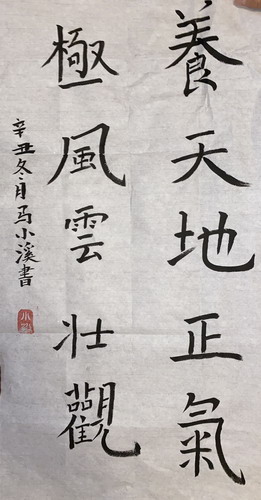 養天地正氣
極風雲壯觀
辛丑冬月马小溪書